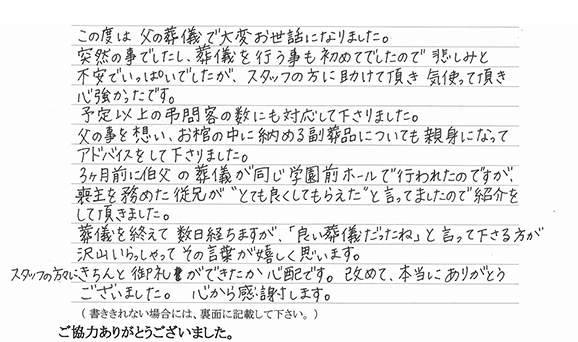 この度は 父の葬儀で大変お世話になりました。
突然の事でしたし、葬儀を行う事も初めてでしたので 悲しみと
不安でいっぱいでしたが、スタッフの方に助けて頂き 気使って頂き
心強かったです。
予定以上の弔問客の数にも対応して下さりました。
父の事を想い、お棺の中に納める副葬品についても親身になって
アドバイスをして下さりました。
3ヶ月前に伯父の葬儀が同じ学園前ホールで行われたのですが、
喪主を務めた従兄が"とても良くしてもらえた"と言ってましたので紹介を
して頂きました。
葬儀を終えて数日経ちますが、「良い葬儀だったね」と言って下さる方が
沢山いらしゃって その言葉が嬉しく思います。
スタッフの方々にきちんと御礼ができたか心配です。改めて、本当にありがとう
ございました。 心から感謝します。
（書ききれない場合には、裏面に記載して下さい。）
ご協力ありがとうございました。